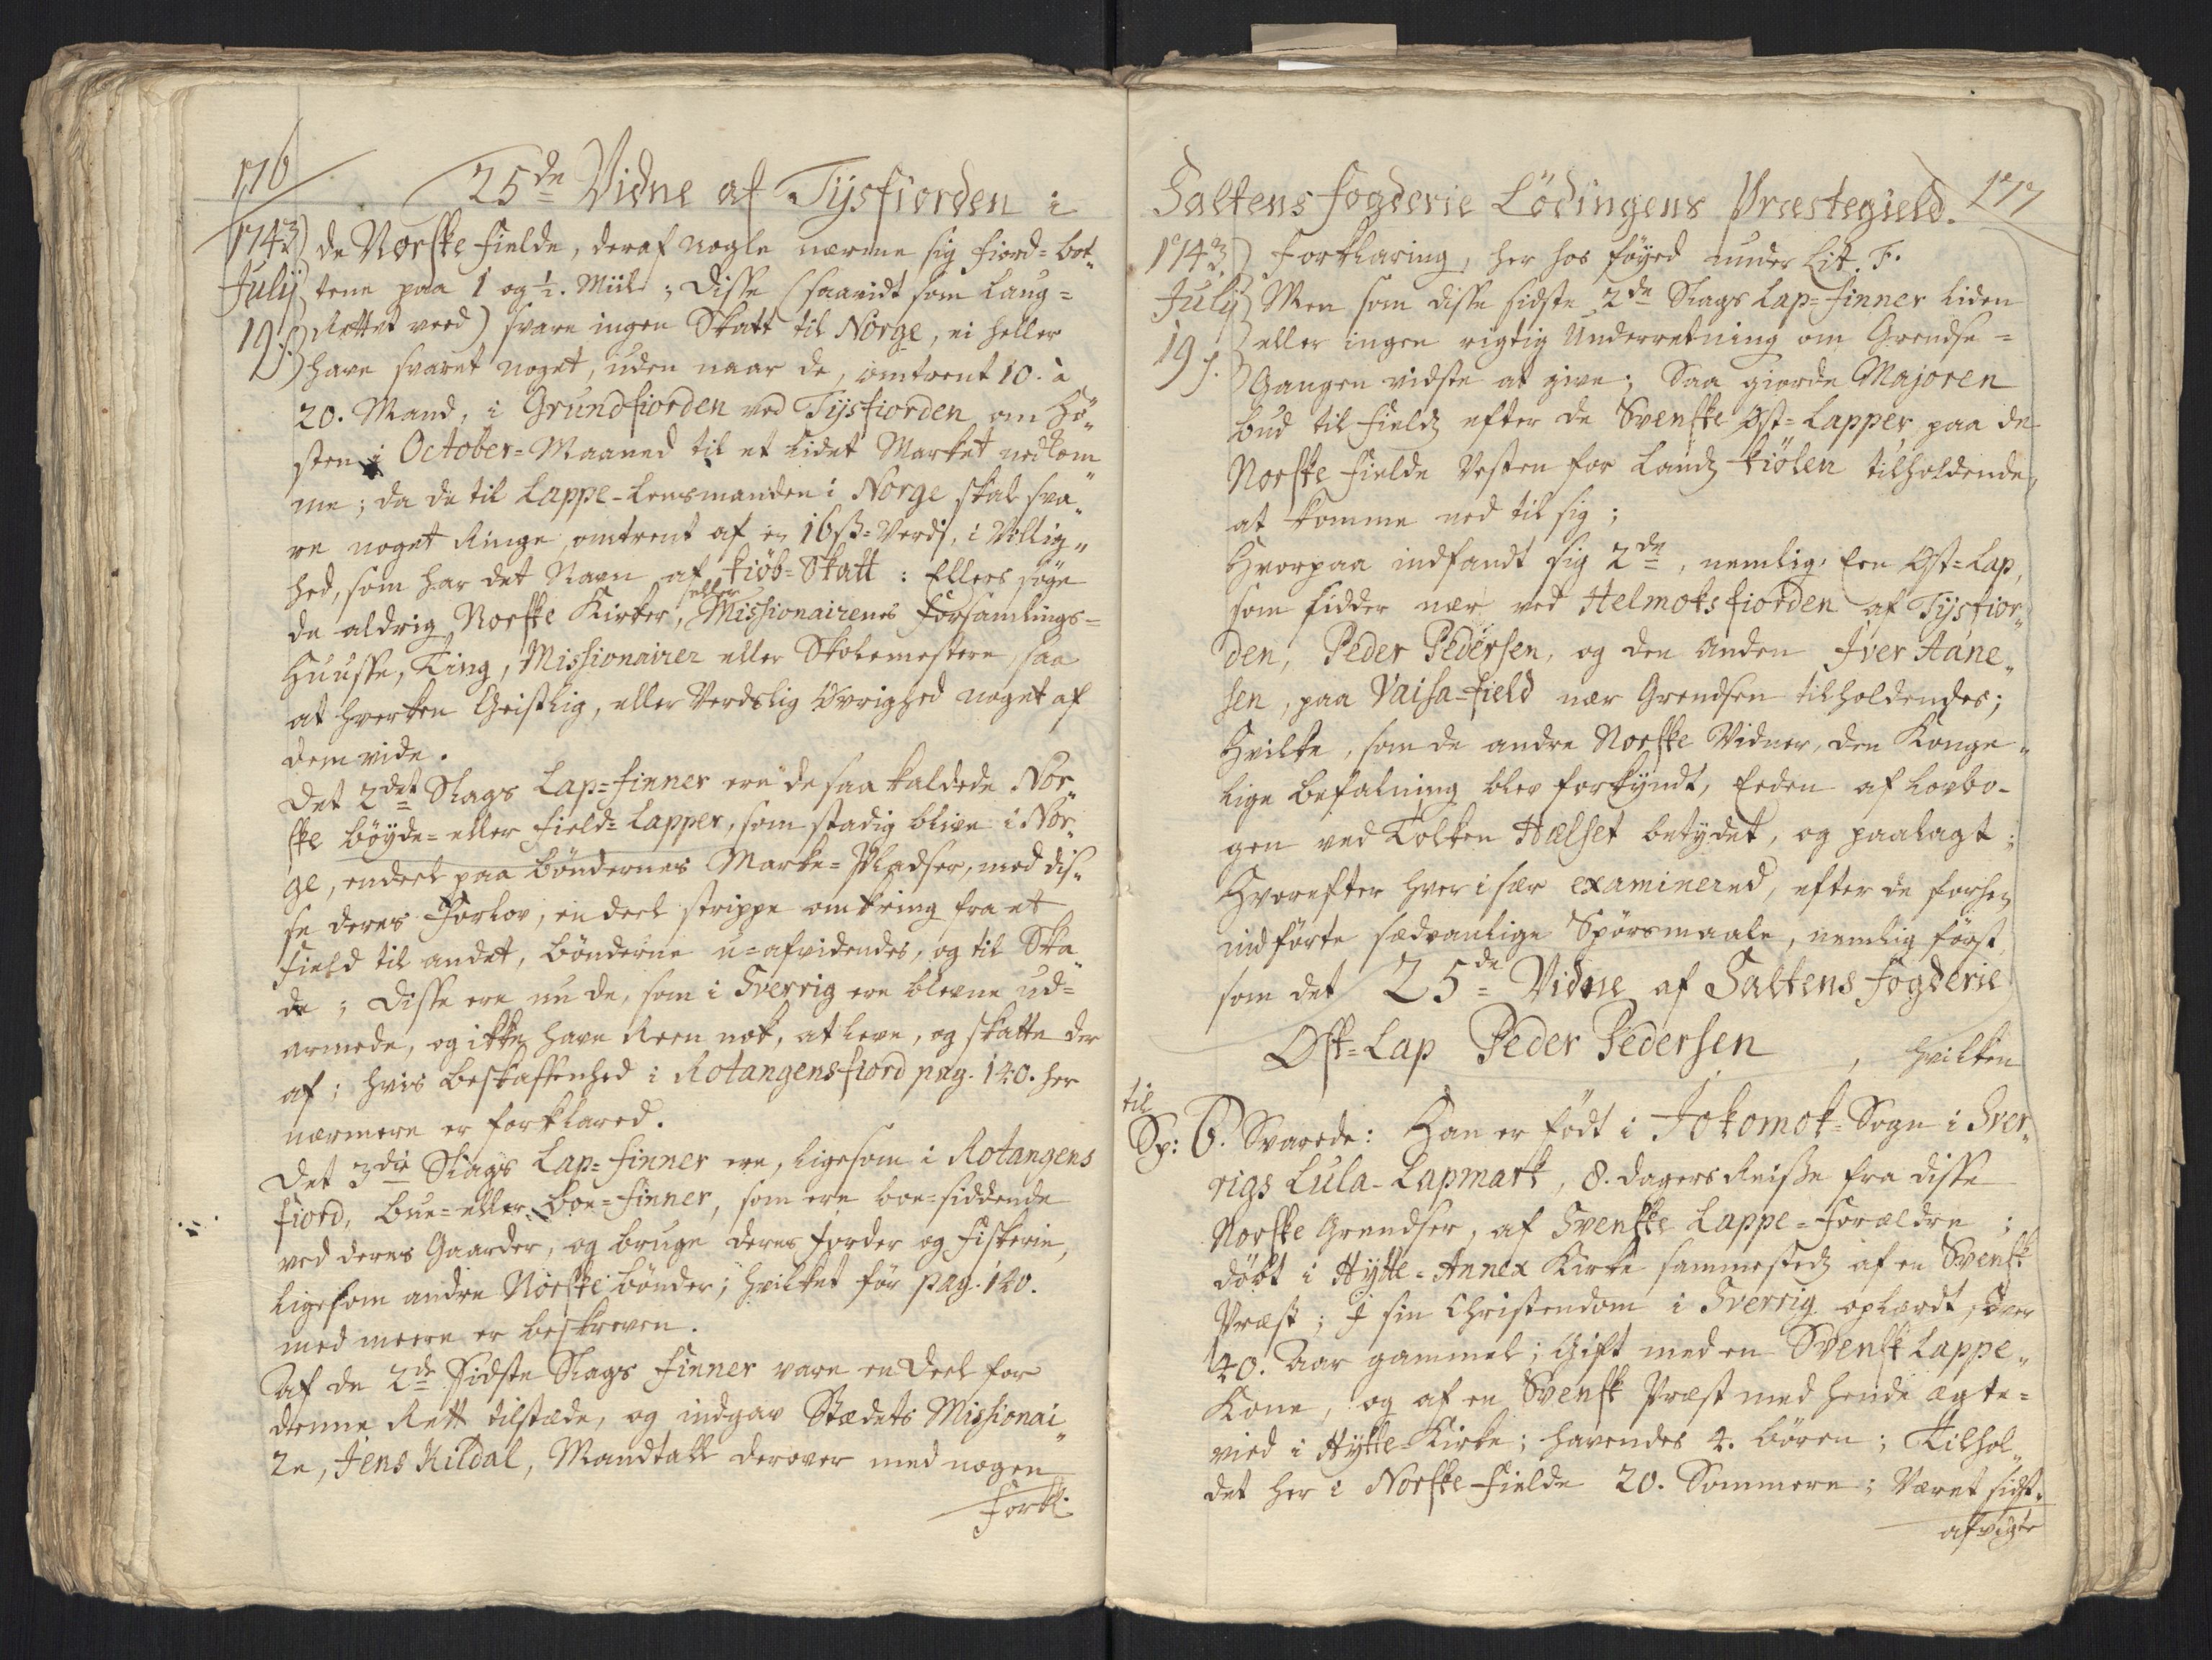 176
25de Vidne af Tysfiorden i
1743 July 19.
de Norske Fielde, deraf nogle nærme sig Fiord-bot„
tene paa 1 og ½. Miil; Disse (saavidt som Laug-
Rettet veed) svare ingen Skatt til Norge, ei heller
have svaret noget, uden naar de, omtrent 10. à
20. Mand, i Grundfiorden ved Tysfiorden om Hö„
sten i October-Maaned til et lidet Market nedkom„
me; da de til Lappe-Lensmanden i Norge skal sva„
re noget Ringe, omtrent af en 16ß-Verdj, i Villig„
hed, som har det Navn af Kiöb-Skatt: Ellers söge
de aldrig Norske Kirker, eller Missionairenes Forsamlings-
Huusse, Ting, Missionairer eller Skolemestere, saa
at hverken Geistlig, eller Verdslig Övrighed noget af
dem vide.
Det 2det Slags Lap-Finner ere de saa kaldede Nor„
ske Böyde- eller Field-Lapper, som stadig blive i Nor„
ge, endeel paa Böndernes Marke-Pladser, med dis„
se deres Forlov, en deel strippe omkring fra et
Field til andet, Bönderne u-afvidendes, og til Ska„
de; Disse ere nu de, som i Sverrig ere blevne ud-
armede, og ikke have Reen nok, at leve, og skatte der
af; hvis Beskaffenhed i Rotangensfiord pag. 140. her
nærmere er forklared.
Det 3die Slags Lap-Finner ere, ligesom i Rotangens
fiord, Bue- eller Boe-Finner, som ere boe-siddende
ved deres Gaarder, og bruge deres Jorder og Fiskerie,
ligesom andre Norske Bönder; hvilket för pag. 140.
med meere er beskreven.
Af de 2de Sidste Slags Finner vare en Deel for
denne Rett tilstæde, og indgav Stædets Missionai„
re, Jens Kildal, Mandtall derover med nogen
Forkl:
Saltens Fogderie Lödingens Præstegield.
177
1743 July 19.
Forklaring, her hos föyed under Lit. F.
Men som disse sidste 2de Slags Lap-Finner liden
eller ingen rigtig Underretning om Grendse-
Gangen vidste at give; Saa giorde Majoren
bud til Fields efter de Svenske Öst-Lapper paa de
Norske Fielde Vesten for Landz Kiölen tilholdende,
at komme ned til sig;
Hvorpaa indfandt sig 2de, nemlig: Een Öst-Lap,
som sidder nær ved Helmoksfiorden af Tysfior„
den, Peder Pedersen, og den anden Iver Aane„
sen, paa Vaisa-Field nær Grendsen tilholdendes;
Hvilke, som de andre Norske Vidner, den Konge„
lige Befalning blev forkyndt, Eeden af Lovbo-
gen ved Tolken Hælset betydet, og paalagt;
Hvorefter hver i sær examinered, efter de forhen
indförte sædvanlige Spörsmaale, nemlig först
som det 25de Vidne af Saltens Fogderie
Öst-Lap Peder Pedersen, hvilken
til
Sp: 6. Svarede: Han er födt i Jokomok-Sogn i Sver„
rigs Lula-Lapmark, 8. dagers Reisse fra disse
Norske Grendser, af Svenske Lappe-Forældre;
döbt i Hytte-Annex Kirke sammesteds af en Svensk
Præst; I sin Christendom i Sverrig oplærdt, över
40. Aar gammel; Gift med en Svensk Lappe„
Kone, og af en Svensk Præst med hende ægte-
vied i Hytte-Kirke; havendes 4. Bören; Tilhol„
det her i Norske Fielde 20. Sommere; Været sidst„
afvigte